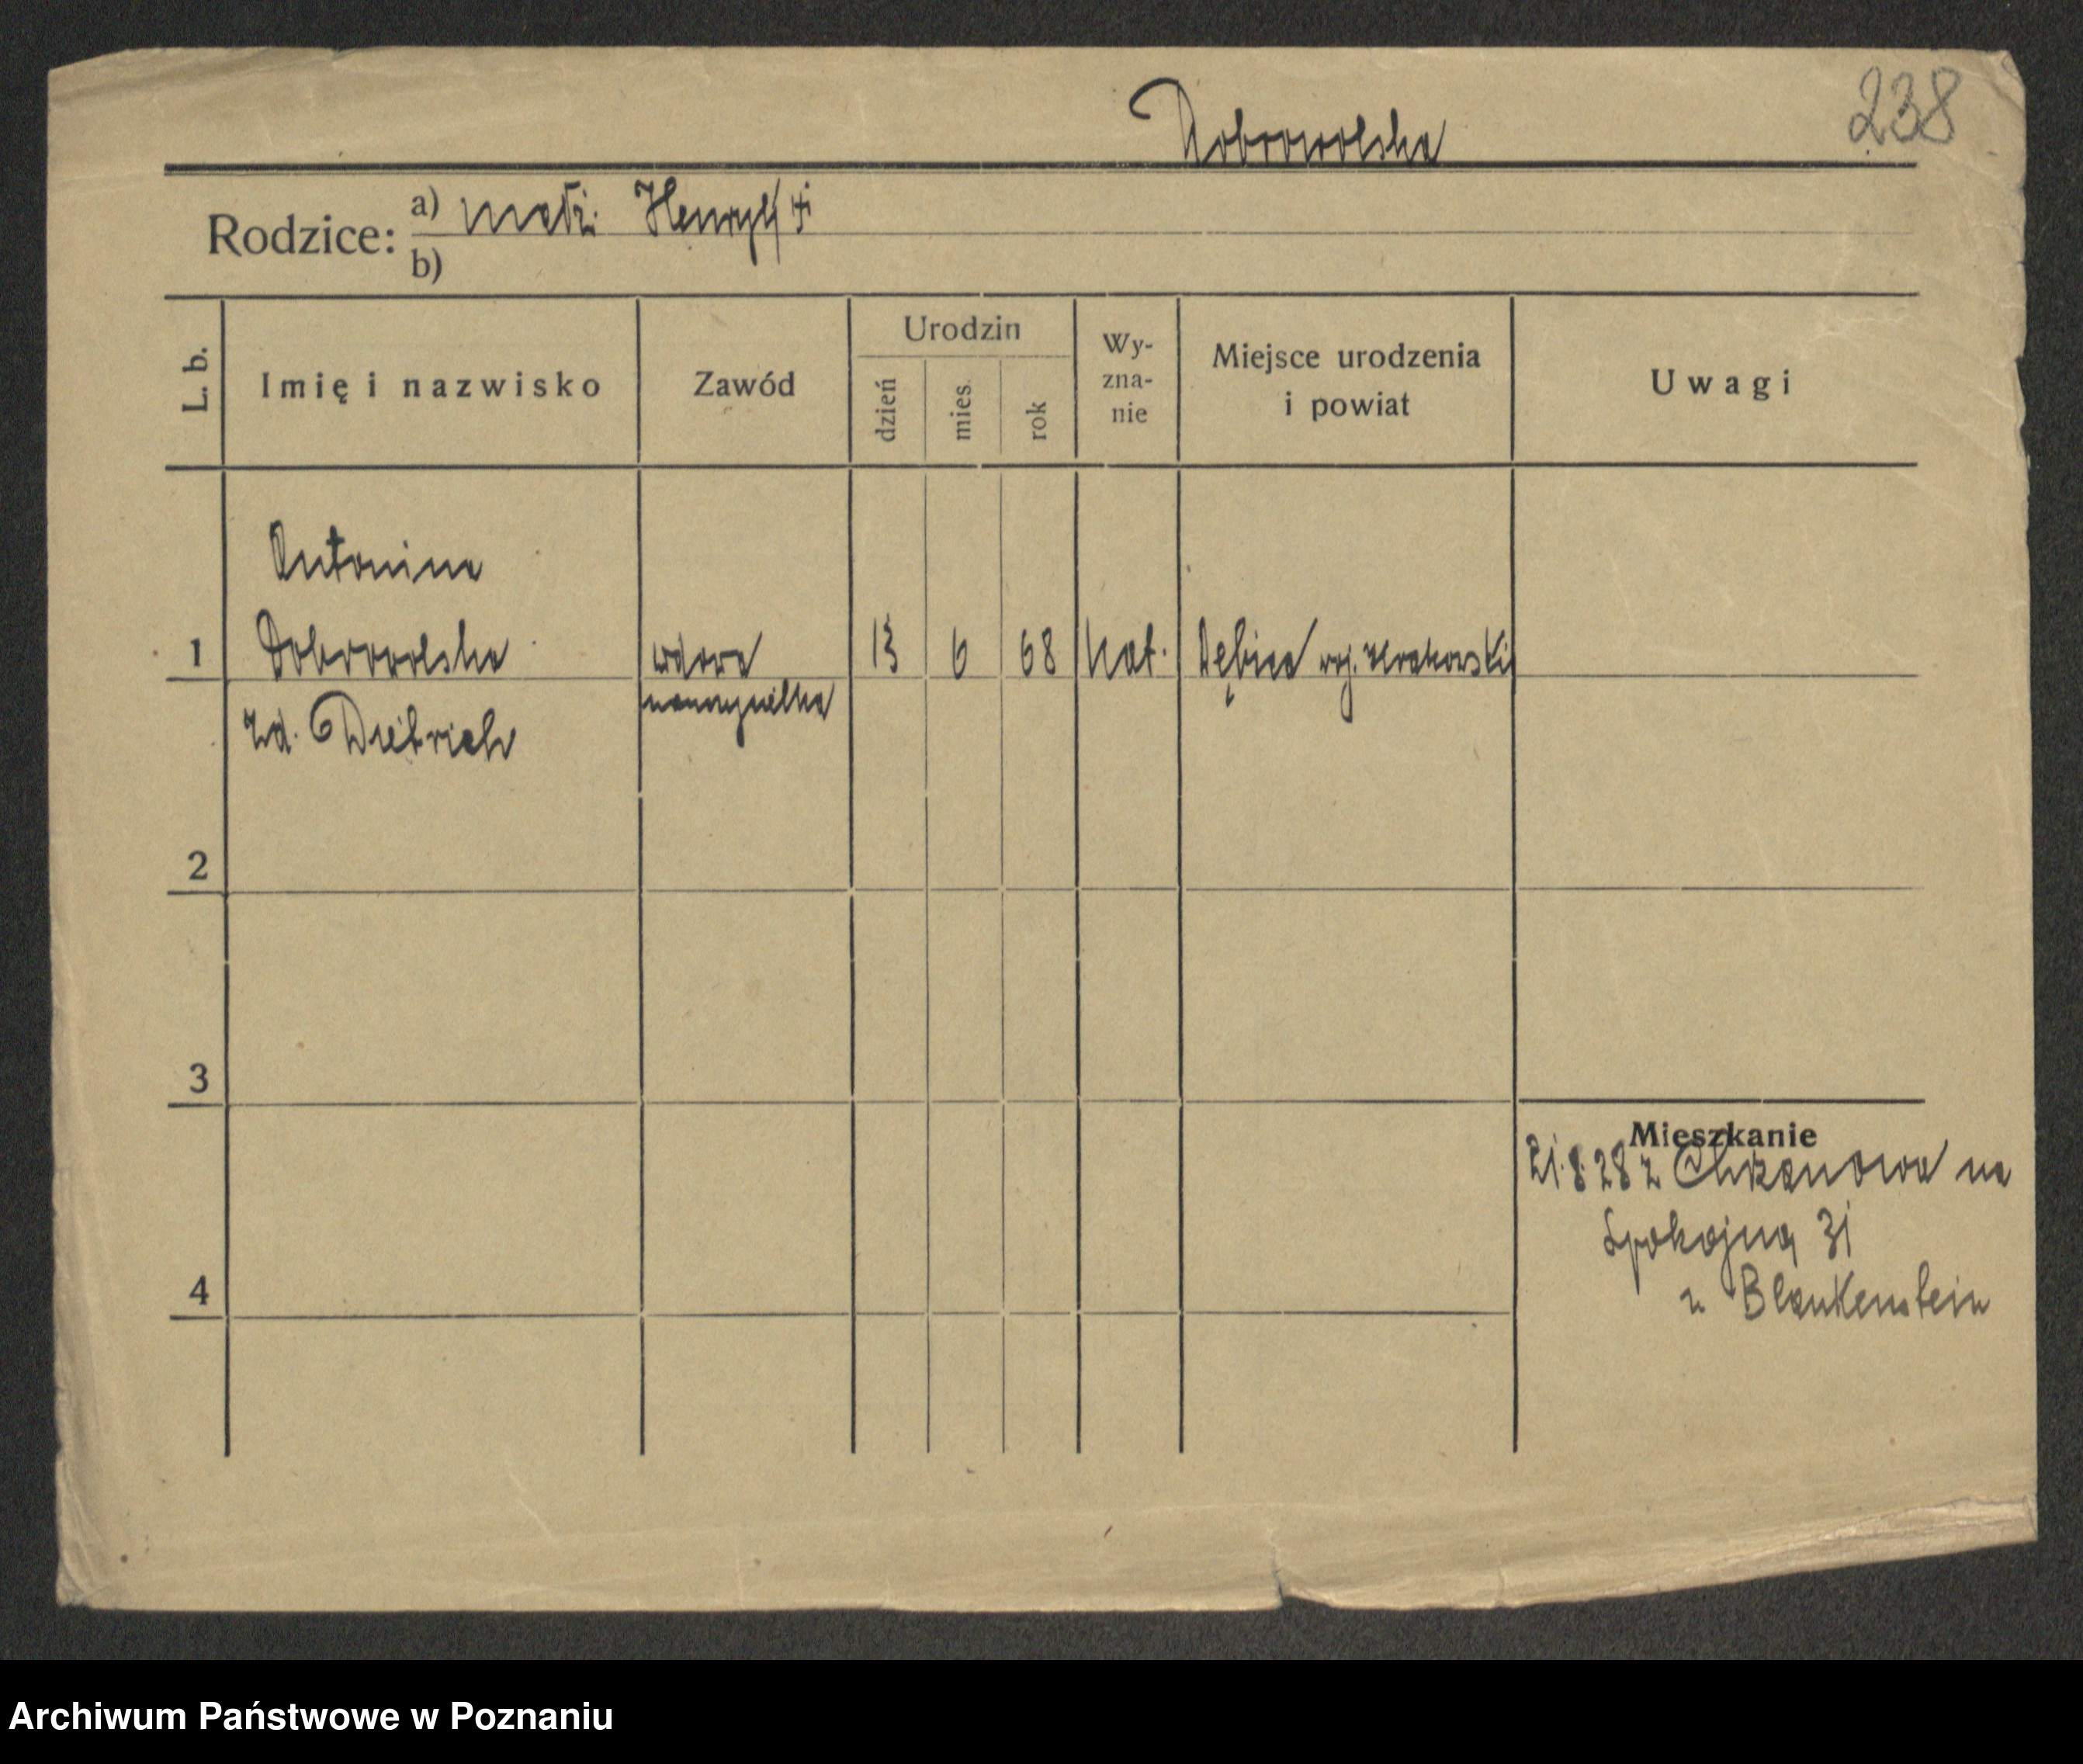 238
Dobrowolska
Rodzice: a) małż. Henryk
b)
L. b.
Imię i nazwisko
Zawód
Urodzin
dzień
mies.
rok
Wy-
zna-
nie
Miejsce urodzenia
i powiat
Uwagi
Antonina
1 Dobrowolska wdowa 13 6 68 kat. Dębica woj. Krakowskie
zd. Dietrich nauczycielka
2
3
4
Mieszkanie
21.8.28 z Chrzanowa na
Spokojną 31
u Blankenstein
Archiwum Państwowe w Poznaniu